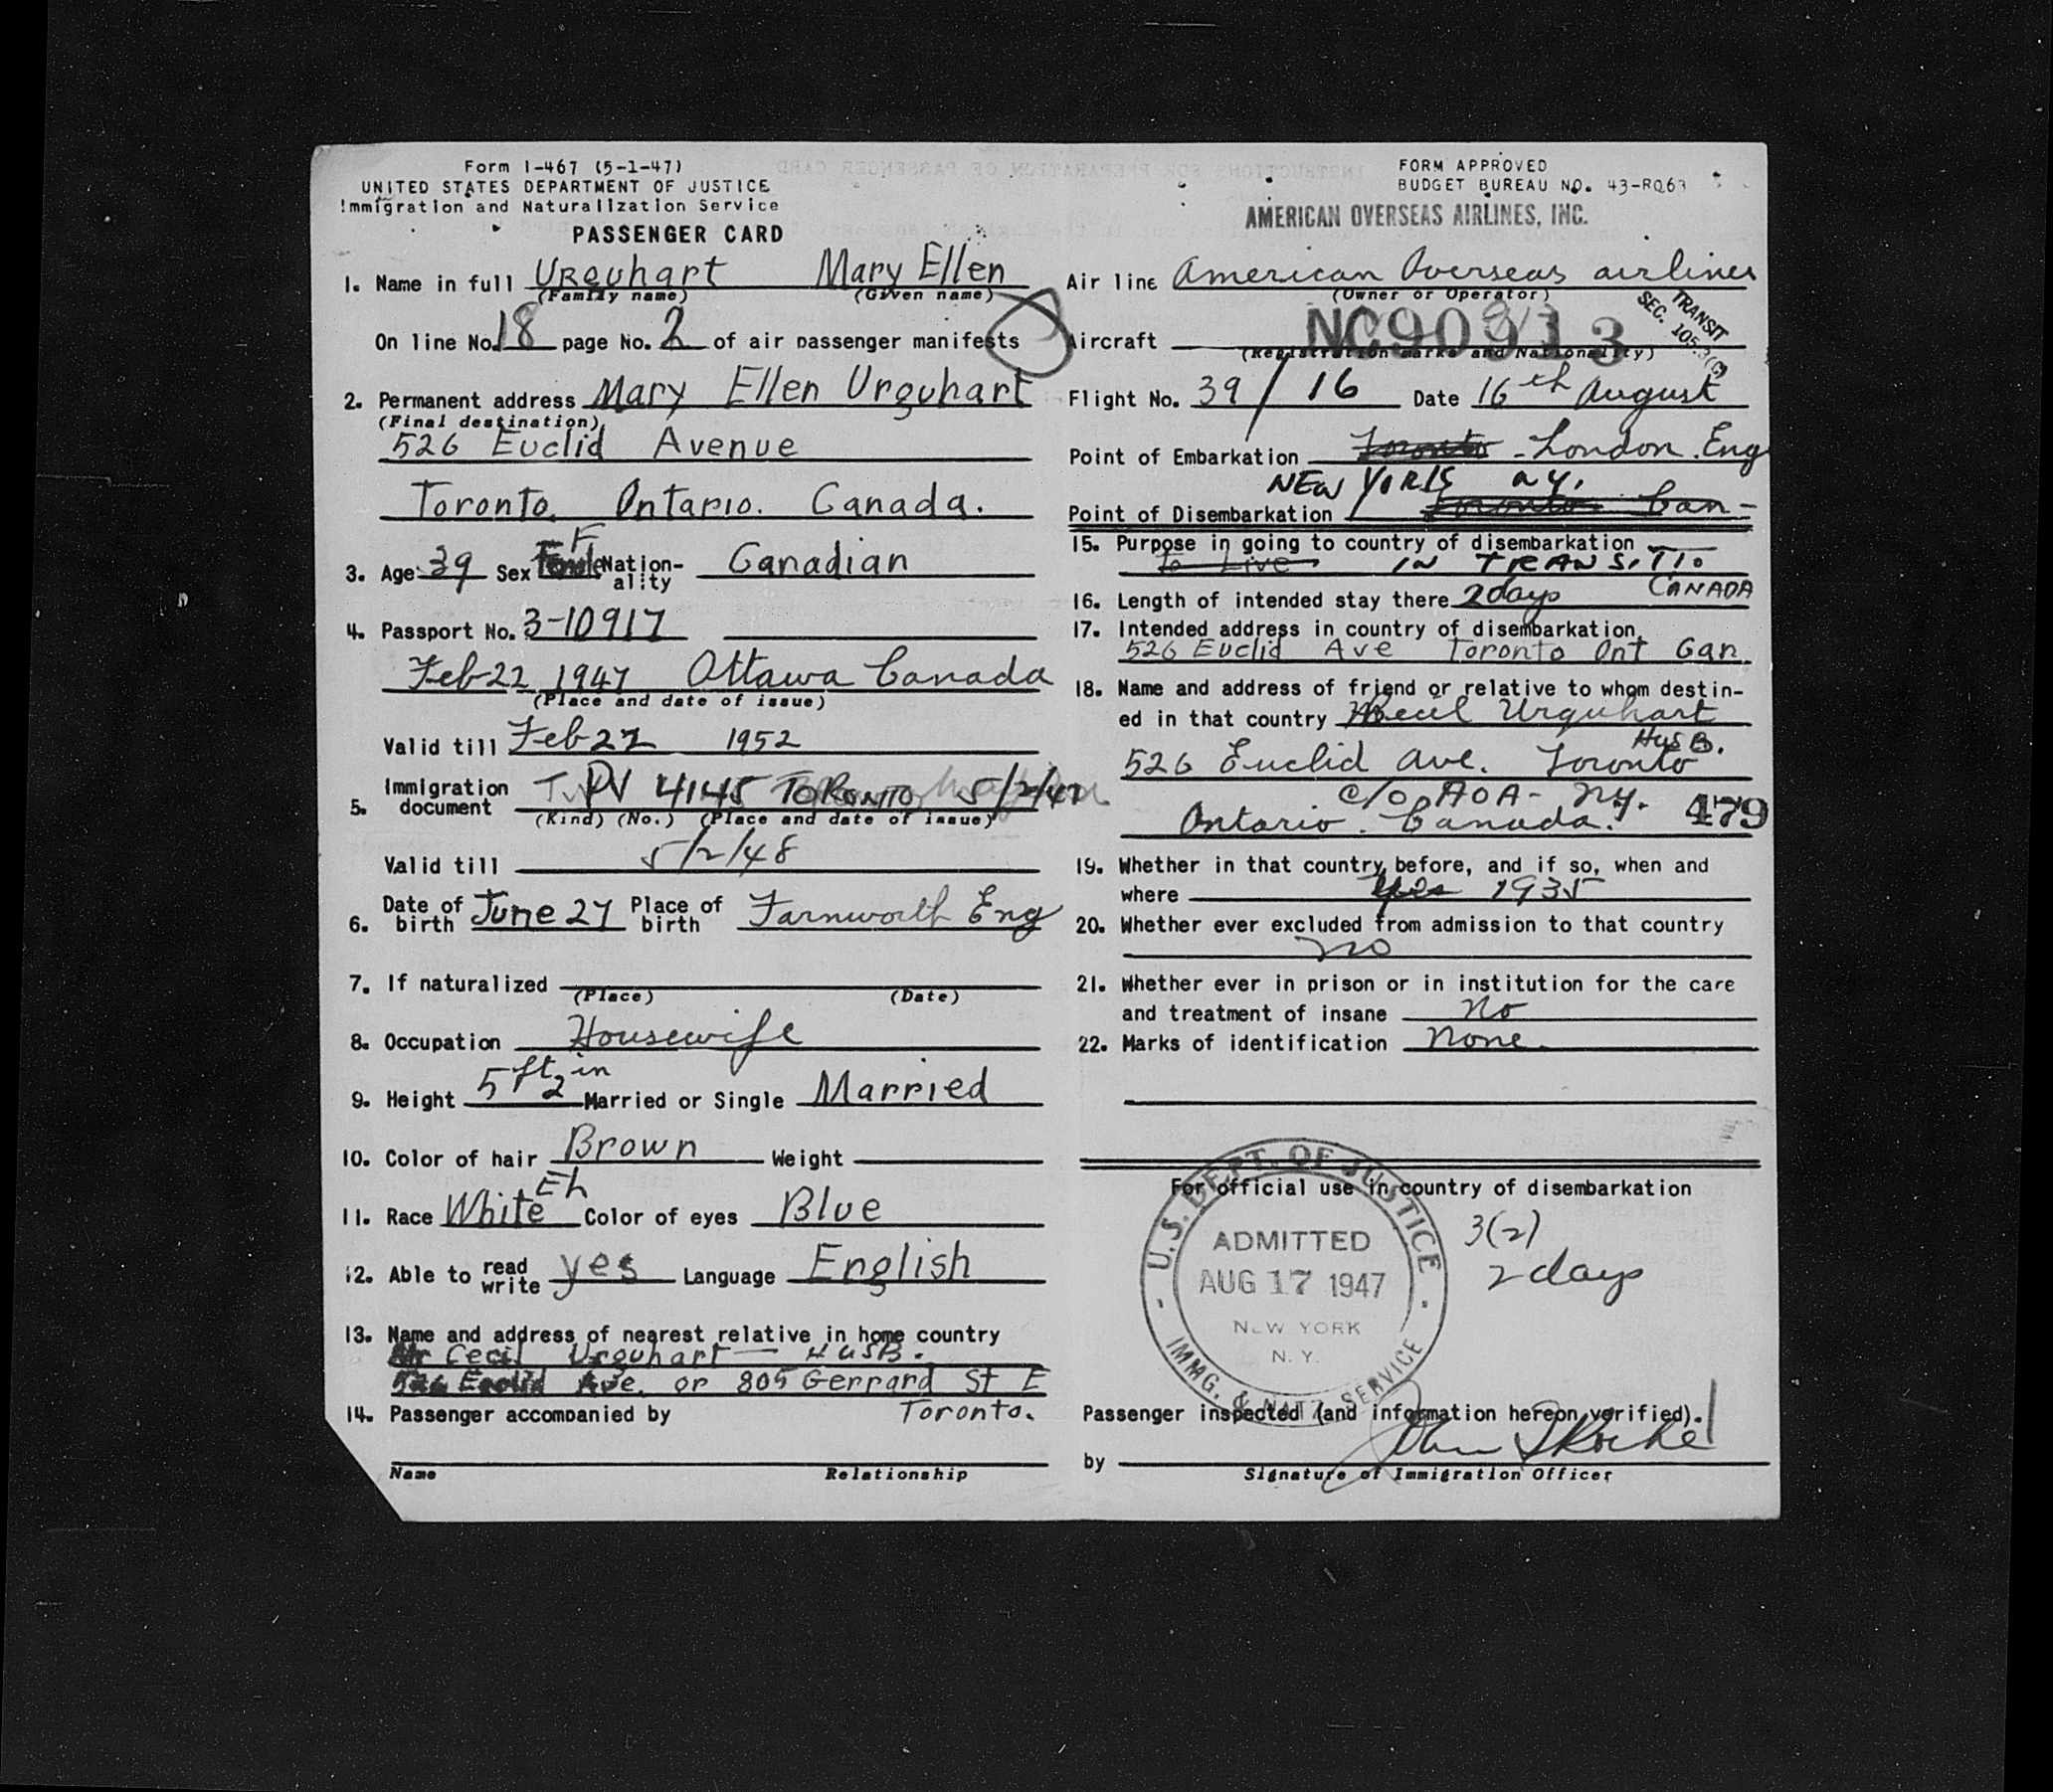 Form I-467 (5-1-47)
UNITED STATES DEPARTMENT OF JUSTICE
Immigration and Naturalization Service
PASSENGER CARD
1. Name in full Urquhart Mary Ellen
(Family name) (Given name)
On line No. 18 page No. 2 of air passenger manifests
2. Permanent address Mary Ellen Urquhart
(Final destination)
526 Euclid Avenue
Toronto. Ontario. Canada.
F
3. Age 39 Sex Nation-ality Canadian
4. Passport No. 3-10917
Feb 22 1947 Ottawa Canada
(Place and date of issue)
Valid till Feb 22 1952
5. Immigration document PV 4145 TORONTO 5/2/47
(Kind) (No.) (Place and date of issue)
Valid till 5/2/48
6. Date of birth June 27 Place of birth Farnworth Eng
7. If naturalized
(Place) (Date)
8. Occupation Housewife
9. Height 5 ft 2 in Married or Single Married
10. Color of hair Brown Weight
Eh
11. Race White Color of eyes Blue
12. Able to read write yes Language English
13. Name and address of nearest relative in home country
Mr Cecil Urquhart — HUSB.
526 Euclid Ave. or 805 Gerrard St E
14. Passenger accompanied by Toronto.
Name Relationship
FORM APPROVED
BUDGET BUREAU NO. 43-R063
AMERICAN OVERSEAS AIRLINES, INC.
Air line American Overseas airlines
(Owner or Operator)
TRANSIT
SEC. 105.3(c)
Aircraft NC90913
(Registration marks and Nationality)
Flight No. 39 / 16 Date 16th August
Point of Embarkation Toronto - London. Eng
NEW YORK N.Y.
Point of Disembarkation Toronto Can-
15. Purpose in going to country of disembarkation
To Live IN TRANSIT TO
CANADA
16. Length of intended stay there 2 days
17. Intended address in country of disembarkation
526 Euclid Ave Toronto Ont Can.
18. Name and address of friend or relative to whom destin-
ed in that country Cecil Urquhart
HUSB.
526 Euclid Ave. Toronto
c/o AOA - NY.
Ontario. Canada. 479
19. Whether in that country before, and if so, when and
where Yes 1935
20. Whether ever excluded from admission to that country
no
21. Whether ever in prison or in institution for the care
and treatment of insane No
22. Marks of identification None.
For official use in country of disembarkation
U.S. DEPT. OF JUSTICE
ADMITTED
AUG 17 1947
NEW YORK
N.Y.
IMMG. & NATZ. SERVICE
3(2)
2 days
Passenger inspected (and information hereon verified).
by
Signature of Immigration Officer